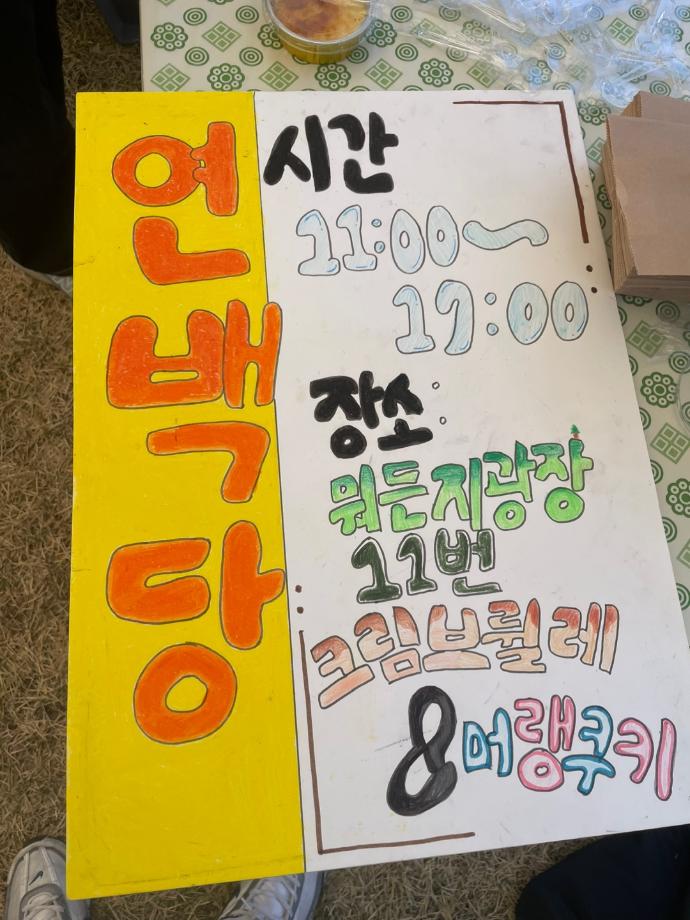 연백당
시간
11:00~
17:00
장소:
뭐든지광장
11번
크림브륄레
&머랭쿠키